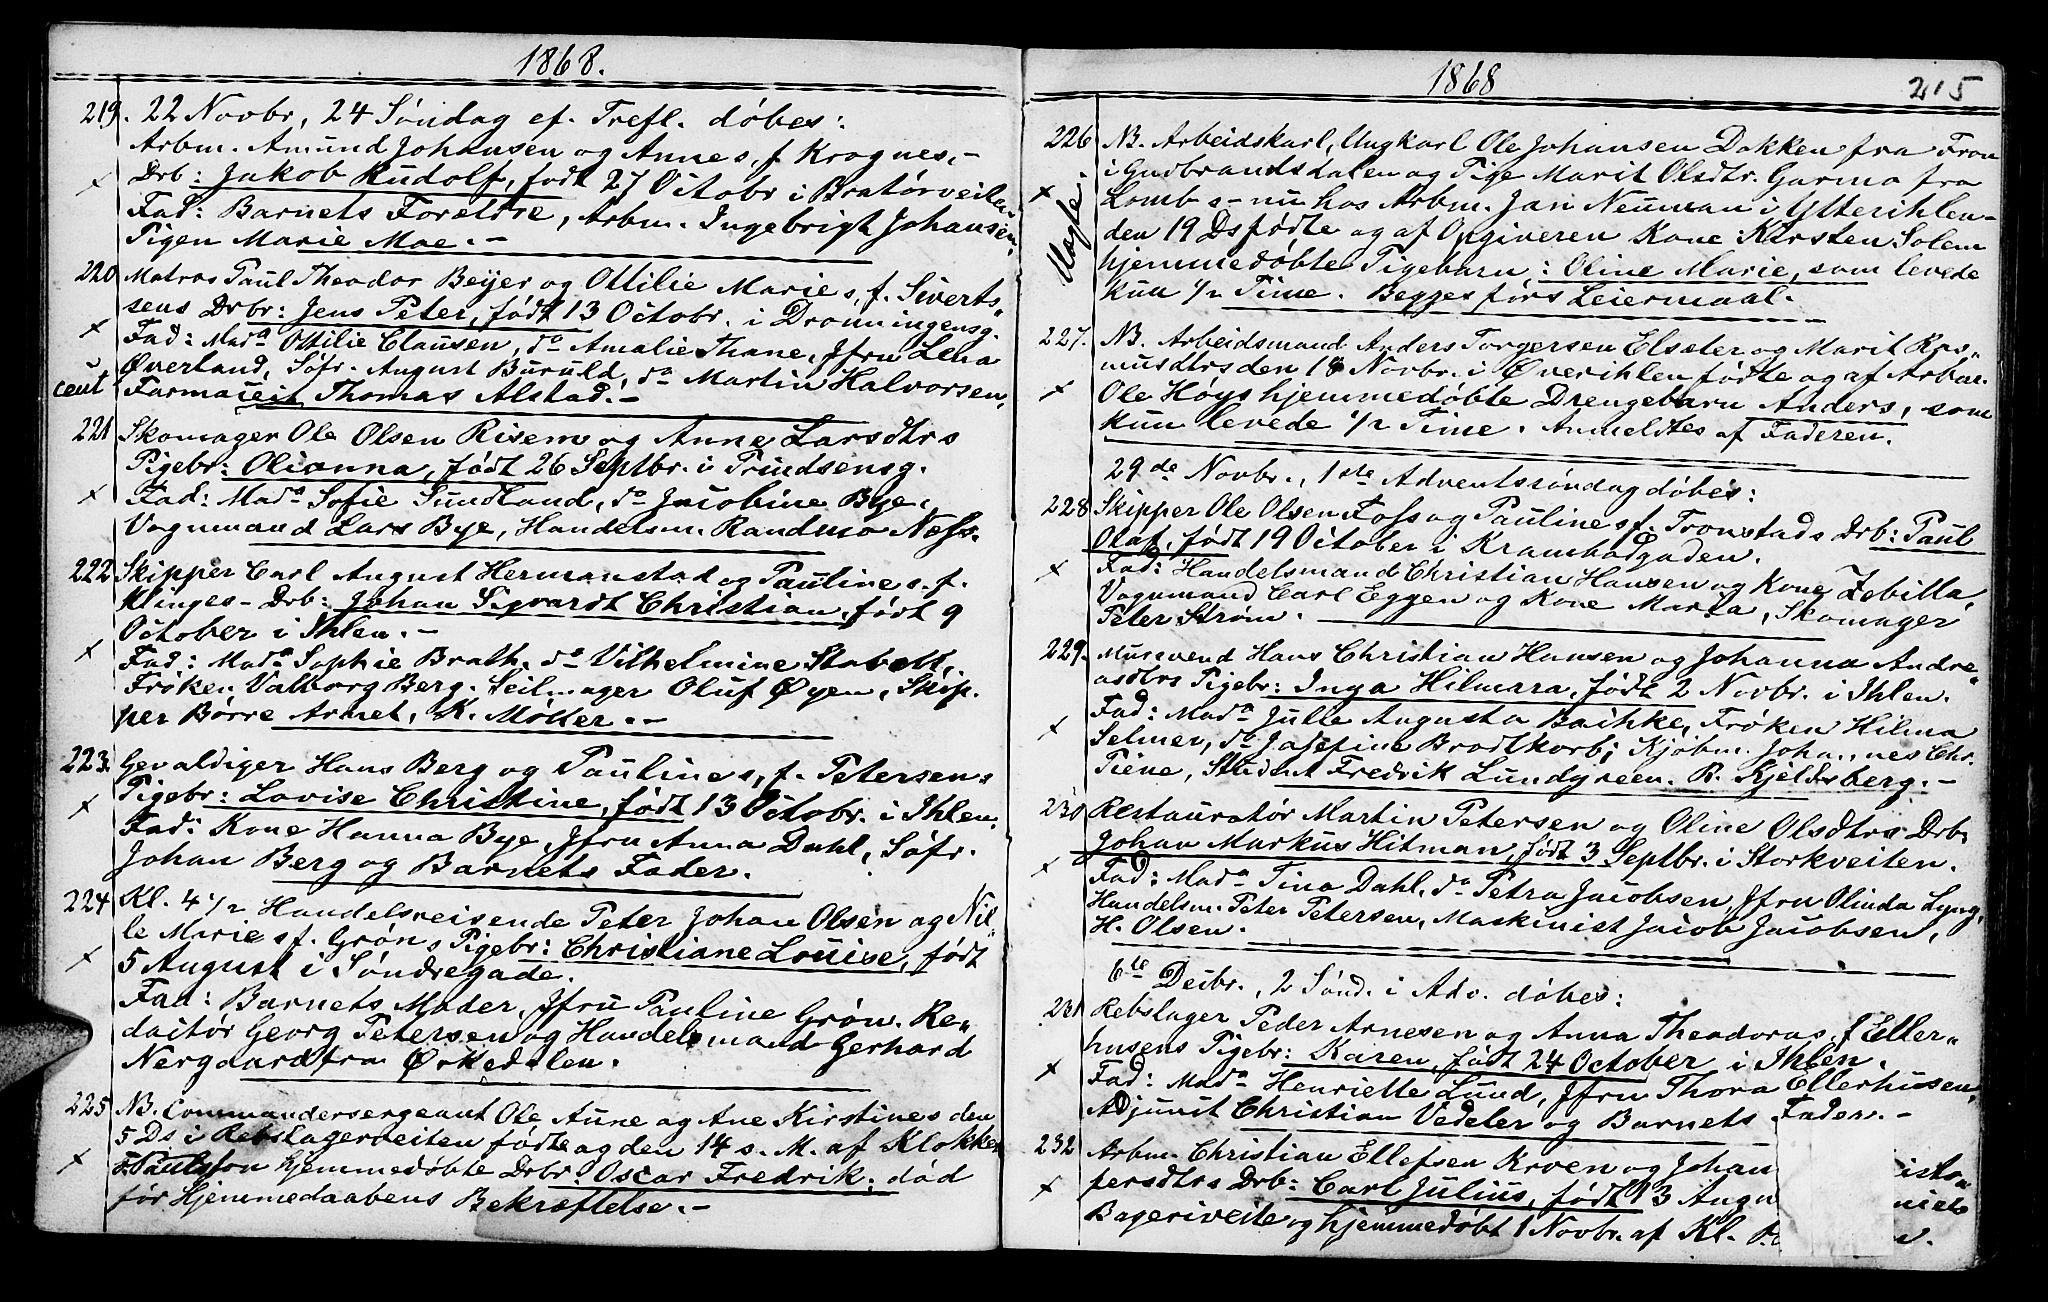 1868.
219. 22 Novbr, 24 Søndag ef. Trefl. døbes:
Arbm. Amund Johansen og Anne s, f. Kragnes,-
Drb: Jakob Rudolf, født 27 Octobr i Bratørveiten
Fad: Barnets Forældre, Arbm. Ingebrigt Johansen,
Pigen Marie Moe.-
220 Matros Paul Theodor Beyer og Ottilie Marie s, f. Siverts-
sens Drbr: Jens Peter, født 13 Octobr. i Dronningensg.
Fad: Mada Ottilie Clausen, do Amalie Thane, Jfru Lena
Øverland, Søfr. August Buruld, do Martin Halvorsen,
cent Farmaceit Thomas Alstad.-
221 Skomager Ole Olsen Risem og Anne Larsdtrs
Pigebr: Olianna, født 26 Septbr. i Prindsensg.
Fad: Mada Sofie Sundland, do Jacobine Bye,
Vognmand Lars Bye, Handelsm. Randmo Næss.
222 Skipper Carl August Hermanstad og Pauline s. f.
Klinges- Drb: Johan Sigvardt Christian, født 9
October i Ihlen.-
Fad: Mada Sophie Brath, do Vilhelmine Stabell,
Frøken Valborg Berg. Seilmager Oluf Øyen, Skip-
per Børre Armet, K. Møller.-
223. Gevaldiger Hans Berg og Pauline s, f. Petersens
Pigebr: Lovise Christine, født 13 Octobr. i Ihlen.
Fad: Kone Hanna Bye, Jfru Anna Dahl, Søfr.
Johan Berg og Barnets Fader.
224 Kl. 4 1/2 Handelsreisende Peter Johan Olsen og Nil-
le Marie s f. Grøns Pigebr: Christiane Louise, født
5 August i Søndregade.
Fad: Barnets Moder, Jfru Pauline Grøn. Re-
dactør Georg Petersen og Handelsmand Gerhard
Nergaard fra Ørkedalen.
225 NB. Commandersergeant Ole Aune og Ane Kirstines den
5 Ds i Rebslagerveiten fødte og den 14 s. M. af Klokker
Paulsson hjemmedøbte Drbr: Oscar Fredrik, død
før Hjemmedaabens Bekræftelse.-
1868
215
226 NB. Arbeidskarl, Ungkarl Ole Johansen Dokken fra Fron
i Gudbrandsdalen og Pige Marit Olsdtr. Garmo fra
Lomb s- nu hos Arbm. Jan Neuman i Ytterihlen-
den 19 Ds fødte og af Opgiveren Kone Kirsten Solem
hjemmedøbte Pigebarn: Oline Marie, som levede
kun 1/2 Time. Begges førs Leiermaal.
227. NB. Arbeidsmand Anders Torgersen Elsæter og Marit Ras-
musdtrs den 18 Novbr. i Øverihlen fødte og af Arbm.
Ole Høys hjemmedøbte Drengebarn Anders, som
kun levede 1/2 Time. Anmeldtes af Faderen.
29de Novbr., 1ste Adventssøndag døbes:
228 Skipper Ole Olsen Foss og Pauline s f. Tronstads Drb: Paul
Olaf, født 19 October i Krambodgaden.
Fad: Handelsmand Christian Hansen og Kone Zebilla,
Vognmand Carl Eggen og Kone Marta, Skomager
Peter Strøm.
229. Mursvend Hans Christian Hansen og Johanna Andre-
asdtrs Pigebr: Inga Hilmarra, født 2 Novbr. i Ihlen.
Fad: Mada Julle Augusta Bathke, Frøken Hilma
Selmer, do Josefine Brodtkorb; Kjøbm. Johannes Chr.
Piene, Student Fredrik Lundgreen. R. Kjeldsberg.-
230 Restauratør Martin Petersen og Oline Olsdtrs Drb.
Johan Markus Hitman, født 3 Septbr. i Storkveiten.
Fad: Mada Tina Dahl, do Petra Jacobsen, Jfru Olinda Lyng,
Handelsm. Peter Petersen, Maskinist Jacob Jacobsen,
H. Olsen.
6te Decbr., 2 Sønd. i Adv. døbes:
231 Rebslager Peder Arnesen og Anna Theodora s. f Eller-
husens Pigebr: Karen, født 24 October i Ihlen.
Fad: Mada Henriette Lund, Jfru Thora Ellerhusen,
Adjunct Christian Vedeler og Barnets Fader.-
232 Arbm. Christian Ellefsen Kroen og Johan
persdtrs Drb: Carl Julius, født 13 Augu
Bageriveite og hjemmedøbt 1 Novbr. af Kl.